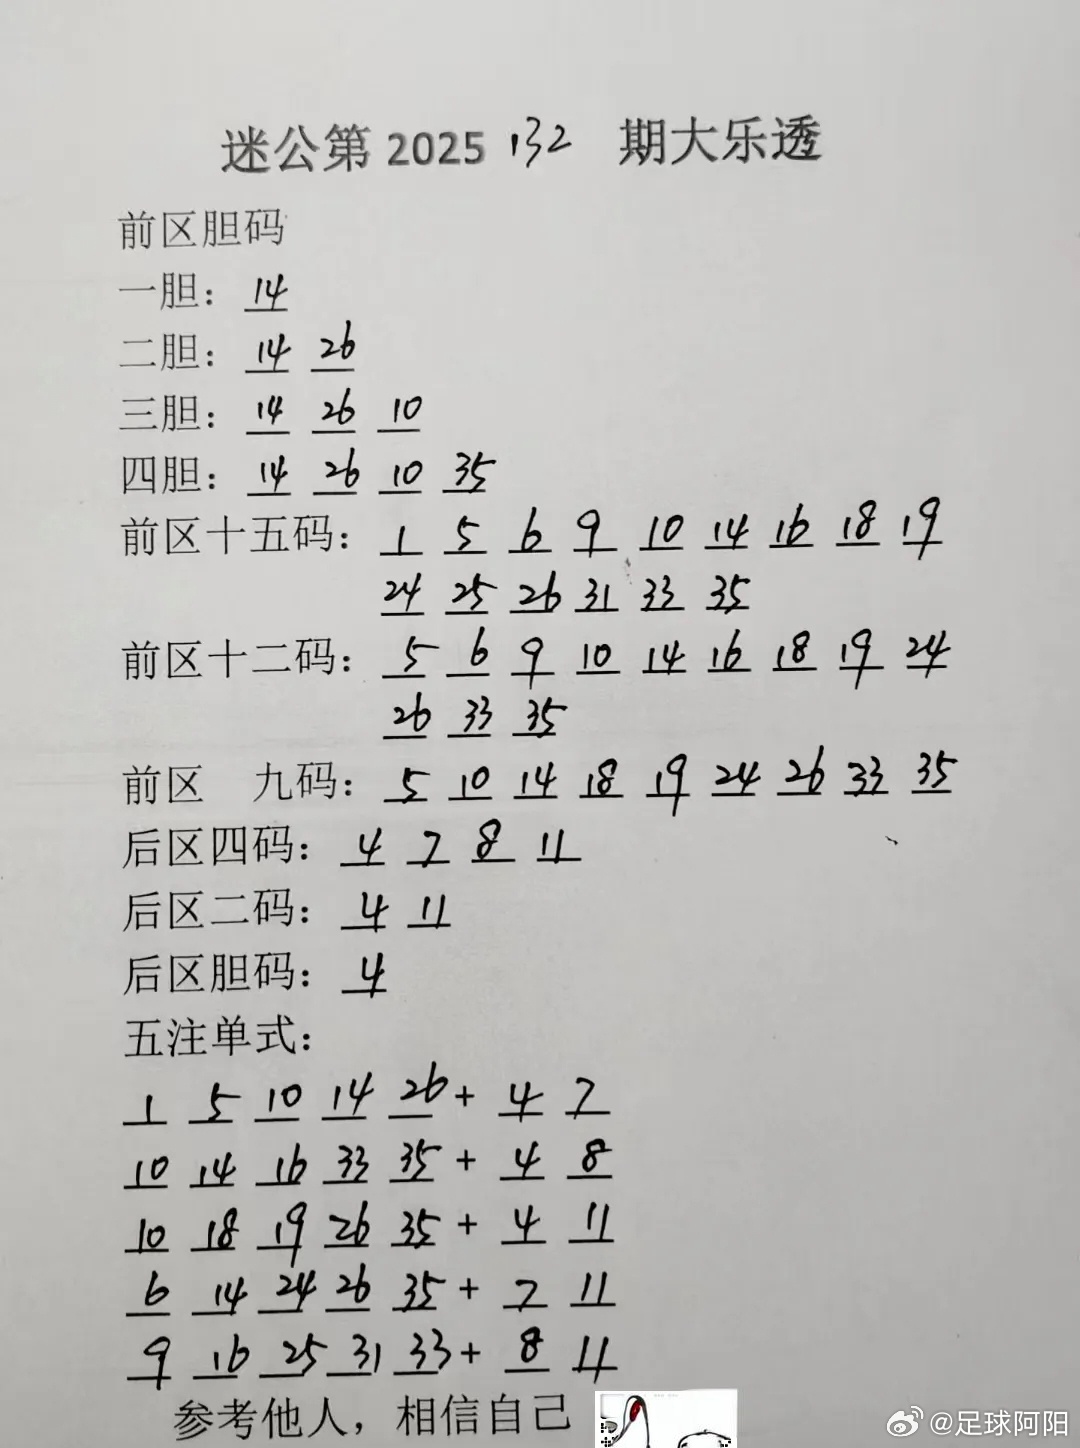 迷公第 2025 132 期大乐透
前区胆码
一胆：14
二胆：14 26
三胆：14 26 10
四胆：14 26 10 35
前区十五码：1 5 6 9 10 14 16 18 19
24 25 26 31 33 35
前区十二码：5 6 9 10 14 16 18 19 24
26 33 35
前区 九码：5 10 14 18 19 24 26 33 35
后区四码：4 7 8 11
后区二码：4 11
后区胆码：4
五注单式：
1 5 10 14 26 + 4 7
10 14 16 33 35 + 4 8
10 18 19 26 35 + 4 11
6 14 24 26 35 + 7 11
9 16 25 31 33 + 8 11
参考他人，相信自己
@足球阿阳